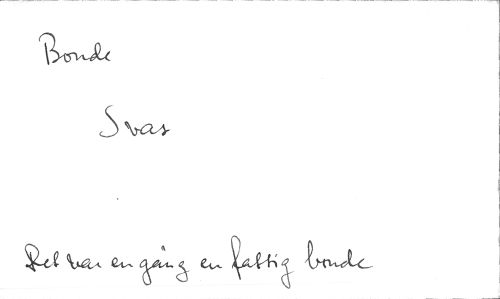 Bonde
Svas
Det var en gång en fattig bonde